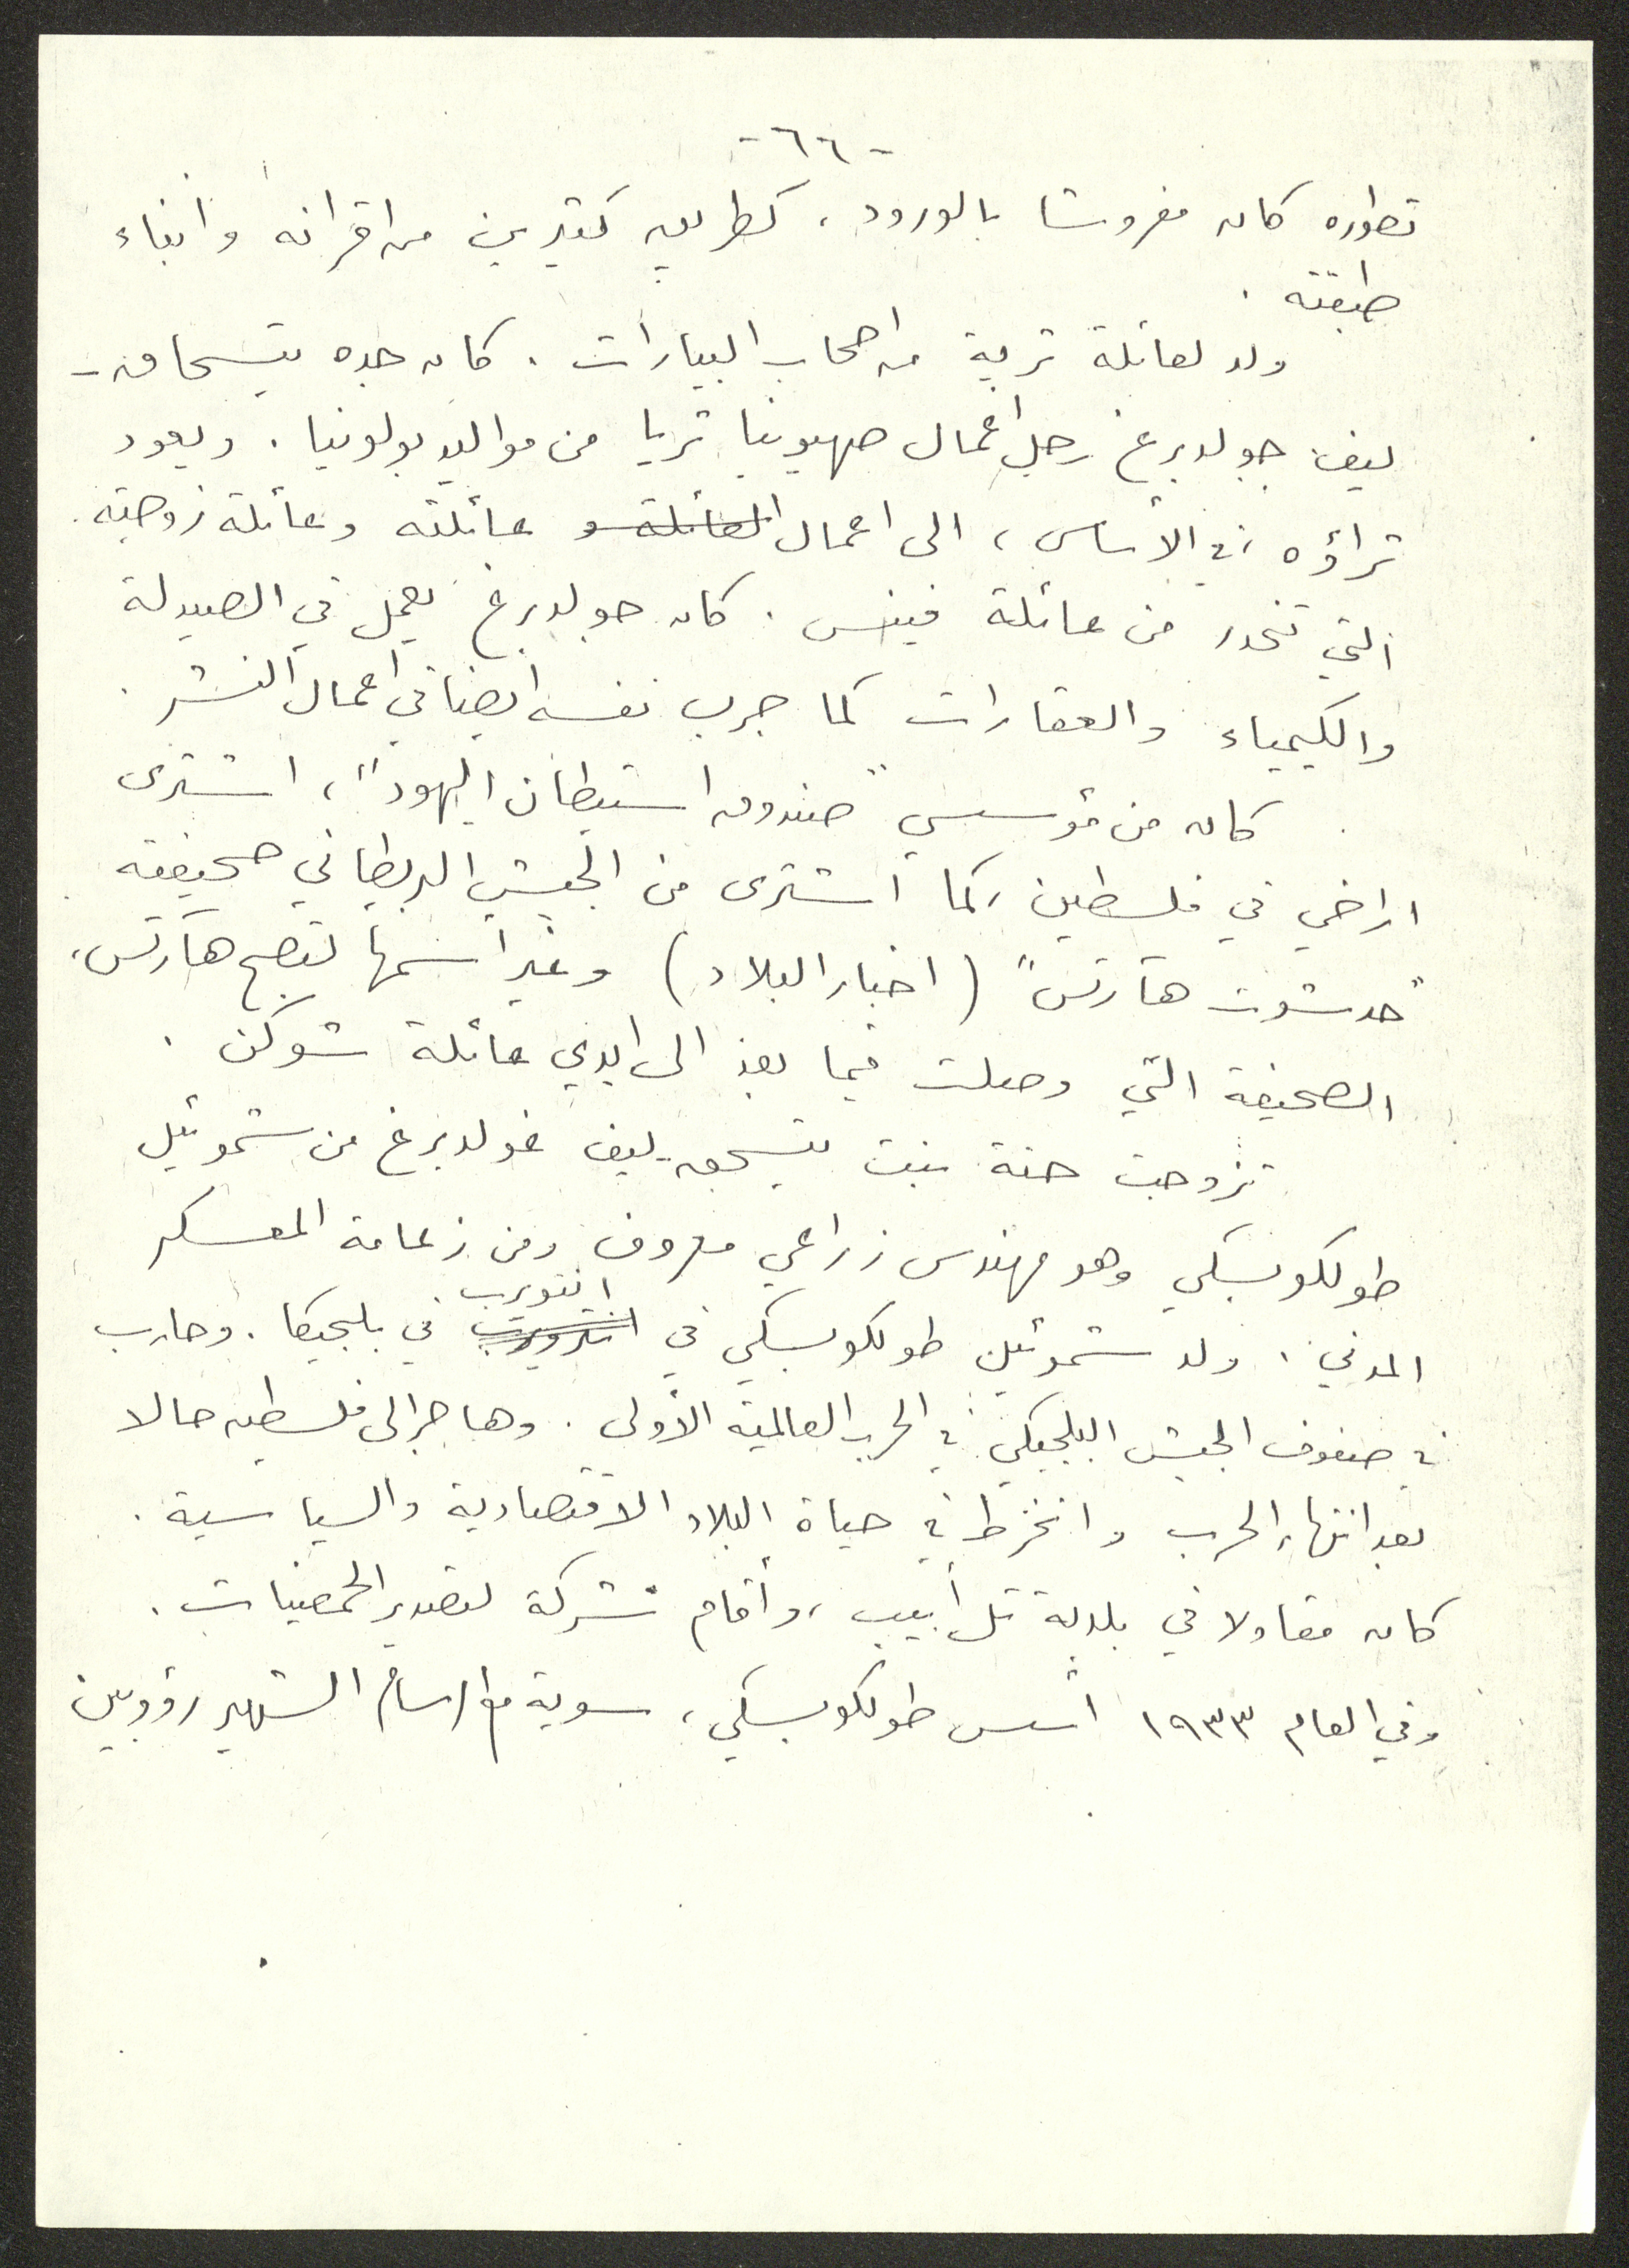 -٦٦-
تطوره كان مفروشا بالورود، كطريق كثيرين من اقرانه وابناء
طبقته.
ولد لعائلة ثرية من اصحاب البيارات. كان جده يتسحاق-
ليف جولدبرغ رجل اعمال صهيونيا ثريا من مواليد بولونيا. ويعود
ثراؤه، في الأساس، الى اعمال العائلة و عائلته وعائلة زوجته.
التي تنحدر من عائلة فينس. كان جولدبرغ يعمل في الصيدلة
والكيمياء والعقارات كما جرب نفسه ايضا في اعمال النشر.
كان من مؤسسي "صندوق استيطان اليهود"، اشترى
اراضي في فلسطين، كما اشترى من الجيش البريطاني صحيفته
"حدشوت هآرتس" (اخبار البلاد) وغير اسمها لتصبح هآرتس،
الصحيفة التي وصلت فيما بعد الى ايدي عائلة شوكن.
تزوجت حنة بنت يتسحق-ليف غولدبرغ من شموئيل
طولكوبسكي وهو مهندس زراعي معروف ومن زعامة المعسكر
المدني. ولد شموئيل طولكوبسكي في انتويرب في بلجيكا. وحارب
في صفوف الجيش البلجيكي في الحرب العالمية الأولى. وهاجر الى فلسطين حالا
بعد انتهاء الحرب وانخرط في حياة البلاد الاقتصادية والسياسية.
كان مقاولا في بلدية تل أبيب، وأقام شركة لتصدير الحمضيات.
وفي العام ١٩٣٣ أسس طولكوبسكي، سوية مع الرسام الشهير رؤوبين